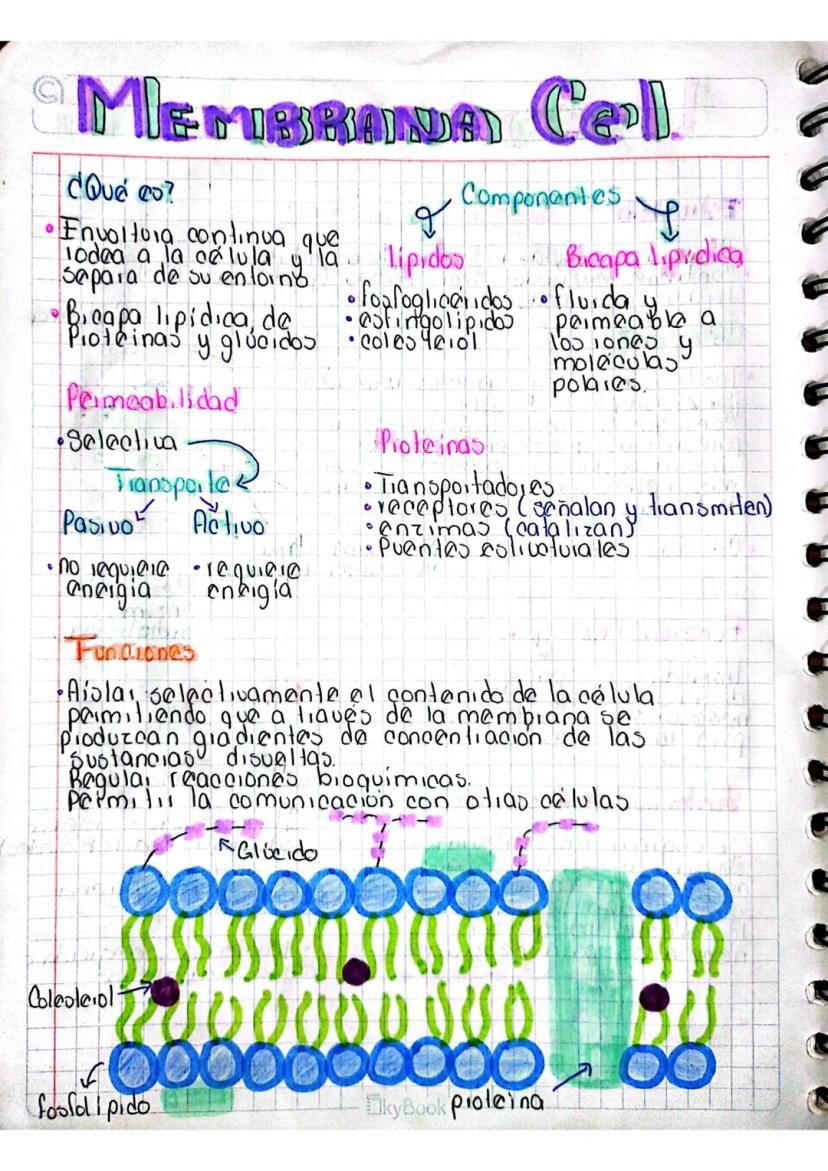 © MEMBRANA Cel.
¿Qué es?
• Envoltura continua que
rodea a la célula y la
separa de su entorno
• Bicapa lipídica, de
Proteinas y glúcidos
Componentes
lípidos
• fosfoglicéridos
• esfingolípidos
• colesterol
Bicapa lipídica
• fluida y
permeable a
los iones y
moléculas
polares.
Permeabilidad
• Selectiva
Transporte
Pasivo
Activo
• no requiere
energía
• requiere
energía
Proteinas
• Transportadores
• receptores (señalan y transmiten)
• enzimas (catalizan)
• Puentes estructurales
Funciones
• Aislar selectivamente el contenido de la célula
permitiendo que a través de la membrana se
produzcan gradientes de concentración de las
sustancias disueltas.
Regular reacciones bioquímicas.
Permitir la comunicación con otras células
Glúcido
Colesterol
fosfolípido
proteina
SkyBook